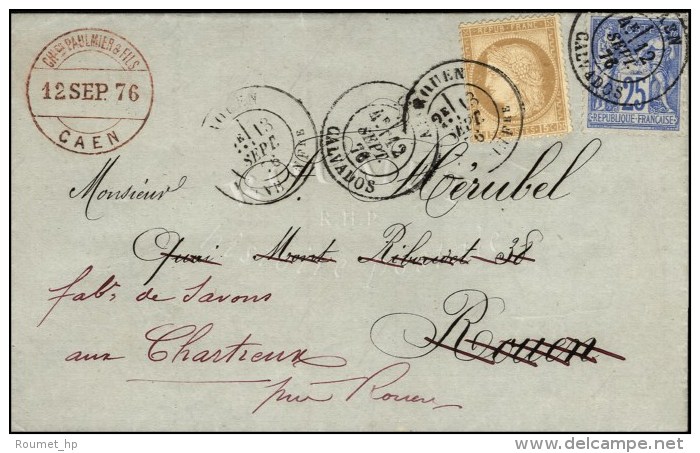 CH. PAULMIER & FILS
12 SEP. 76
CAEN
REPUB. FRANC.
CALVADOS
4E 12
SEPT.
76
25
REPUBLIQUE FRANÇAISE
ROUEN
2E 13
SEPT.
ROUEN
2E 13
SEPT.
4E 12
SEPT.
76
CALVADOS
Monsieur Mérubel
Quai Mont Riboudet 38
Rouen
fabt de Savons
aux Chartreux
près Rouen
Roumet_hp
delcampe.net